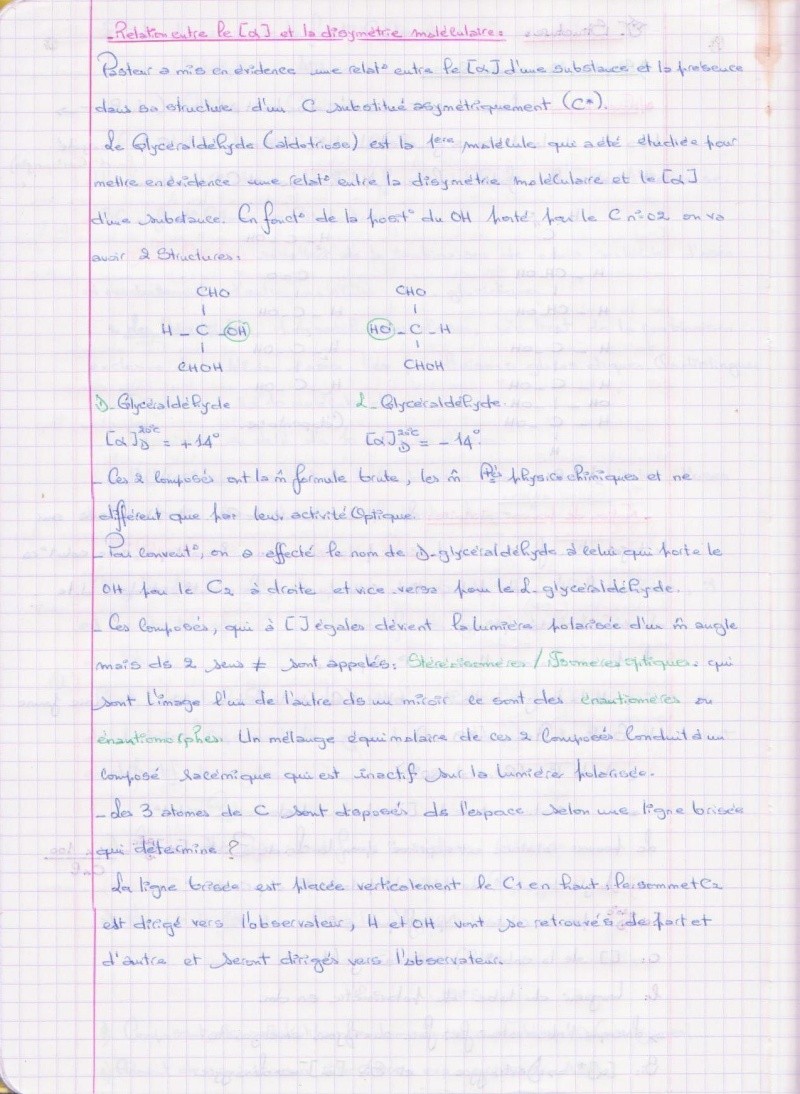 - Relation entre le [α] et la disymétrie moléculaire:
Pasteur a mis en évidence une relat° entre le [α] d'une substance et la présence
dans sa structure d'un C substitué asymétriquement (C*).
Le Glycéraldéhyde (aldotriose) est la 1ère molécule qui a été étudiée pour
mettre en évidence une relat° entre la disymétrie moléculaire et le [α]
d'une substance. En fonct° de la posit° du OH porté par le C n=02 on va
avoir 2 structures:
CHO CHO
H - C - OH HO - C - H
CHOH CHOH
D-Glycéraldéhyde L-Glycéraldéhyde.
[α]D 20°C = +14° [α]D 20°C = -14°.
- Ces 2 composés ont la m̂ formule brute, les m̂ Ptés physico chimiques et ne
différent que par leur activité Optique.
- Par convent°, on a effecté le nom de D-glycéraldéhyde à celui qui porte le
OH par le C2 à droite et vice versa pour le L-glycéraldéhyde.
- Ces composés, qui à [ ] égales dévient la lumière polarisée d'un m̂ angle
mais ds 2 sens ≠ sont appelés: Stéréoisomères / Isomères optiques, qui
sont l'image l'un de l'autre ds un miroir ce sont des énantiomères ou
énantiomorphes. Un mélange équimolaire de ces 2 composés conduit à un
composé racémique qui est inactif sur la lumière polarisée.
- Les 3 atomes de C sont disposés ds l'espace selon une ligne brisée
qui détermine ?
La ligne brisée est placée verticalement le C1 en haut, le sommet C2
est dirigé vers l'observateur, H et OH vont se retrouvés de part et
d'autre et seront dirigés vers l'observateur.